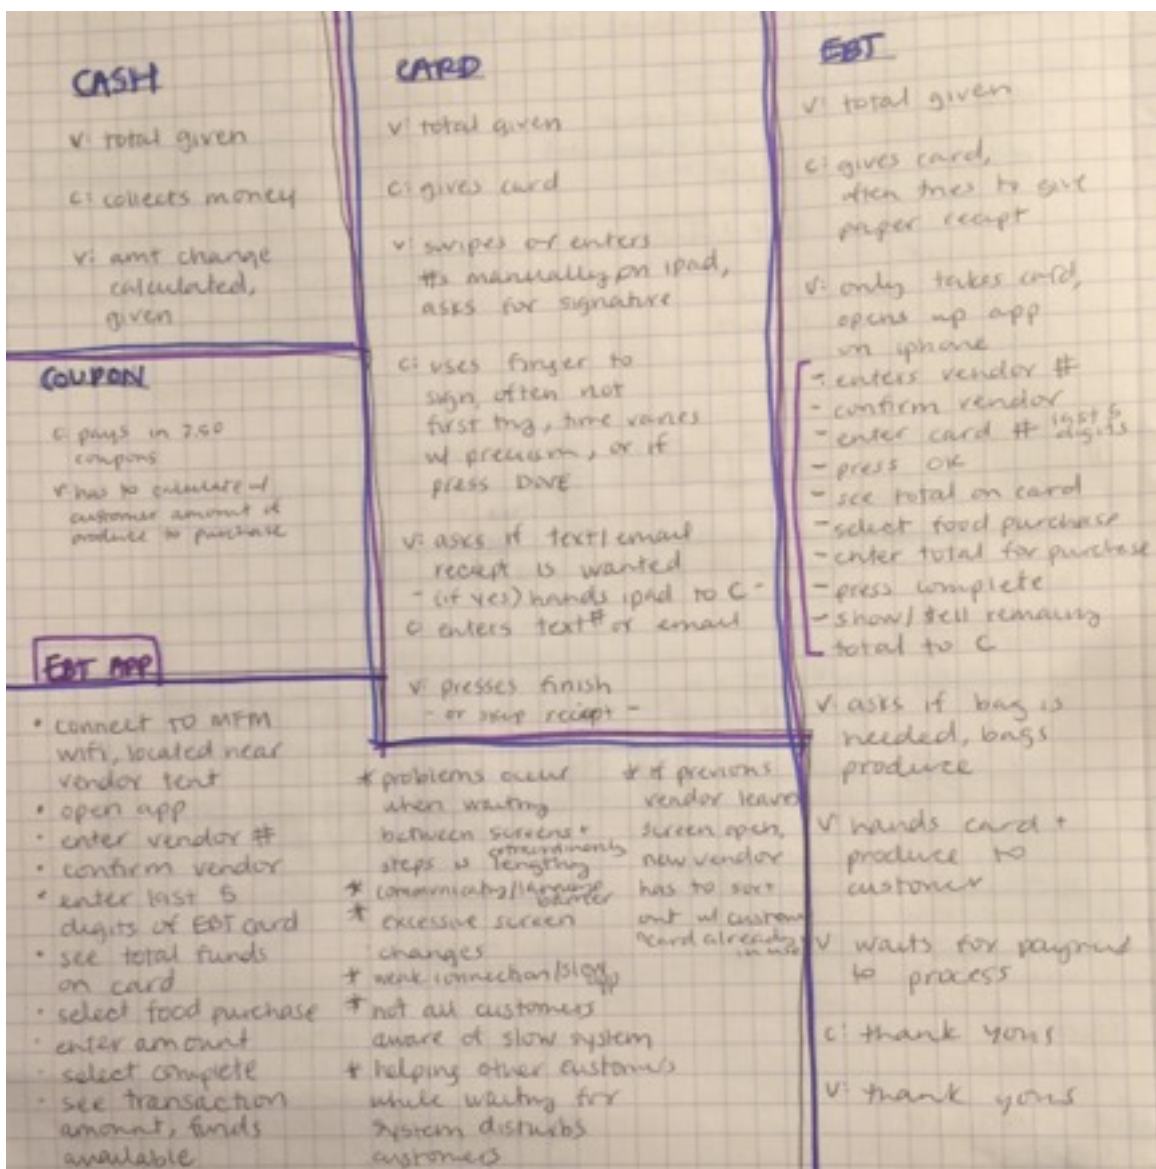 CASH
V: total given
C: collects money
V: amt change
calculated,
given
COUPON
C: pays in 2.50
coupons
V: has to calculate w/
customer amount of
produce to purchase
EBT APP
• connect TO MFM
wifi, located near
vendor tent
• open app
• enter vendor #
• confirm vendor
• enter last 5
digits of EBT card
• see total funds
on card
• select food purchase
• enter amount
• select complete
• see transaction
amount, funds
available
CARD
V: total given
C: gives card
V: swipes or enters
#s manually on ipad,
asks for signature
C: uses finger to
sign, often not
first try, time varies
w/ precision, or if
press DONE
V: asks if text/email
reciept is wanted
- (if yes) hands ipad to C -
C enters text# or email
V: presses finish
- or skip reciept -
* problems occur
when waiting
between screens +
steps is extraordinarily lengthy
* communicating/language barrier
* excessive screen
changes
* weak connection/slow app
* not all customers
aware of slow system
* helping other customers
while waiting for
system disturbs
customers
* if previous
vendor leaves
screen open,
new vendor
has to sort
out w/ custom
"card already in use
EBT
V: total given
C: gives card,
often tries to give
paper reciept
V: only takes card,
opens up app
on iphone
- enters vendor #
- confirm vendor
- enter card # last 5 digits
- press OK
- see total on card
- select food purchase
- enter total for purchase
- press complete
- show/tell remaining
total to C
V: asks if bag is
needed, bags
produce
V hands card +
produce to
customer
V waits for payment
to process
C: thank yous
V: thank yous